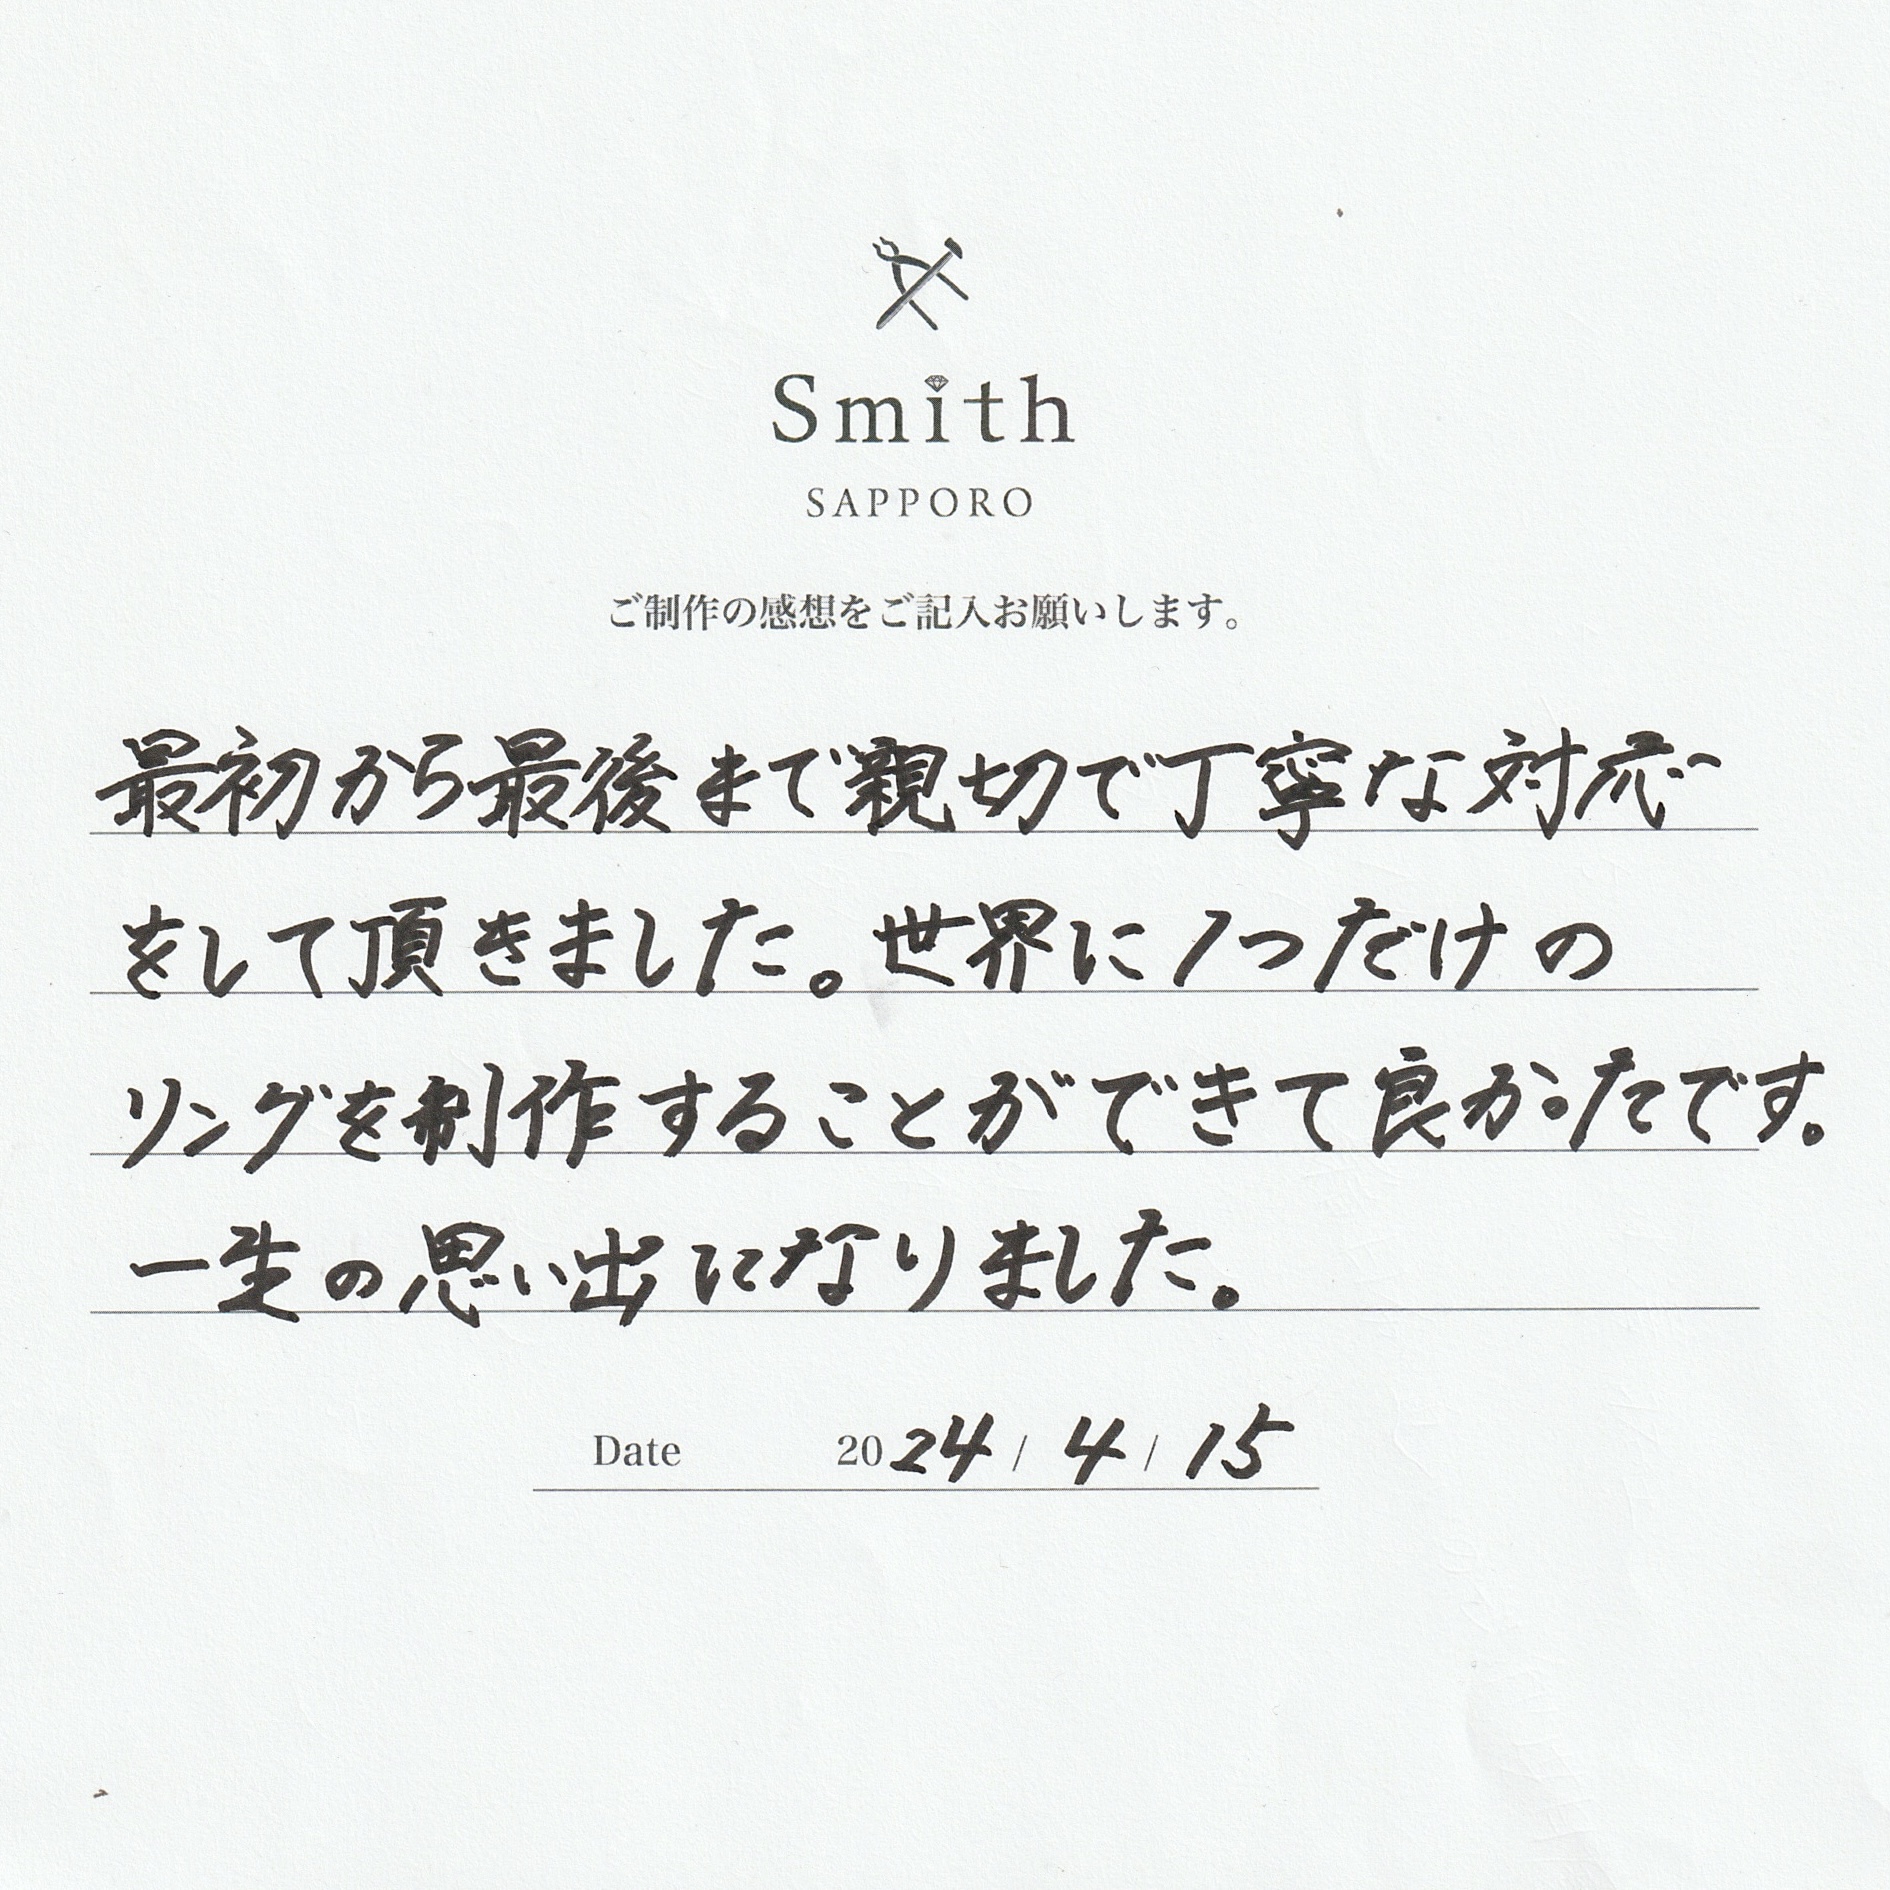 Smith
SAPPORO
ご制作の感想をご記入お願いします。
最初から最後まで親切で丁寧な対応
をして頂きました。世界に1つだけの
リングを制作することができて良かったです。
一生の思い出になりました。
Date 2024 / 4 / 15